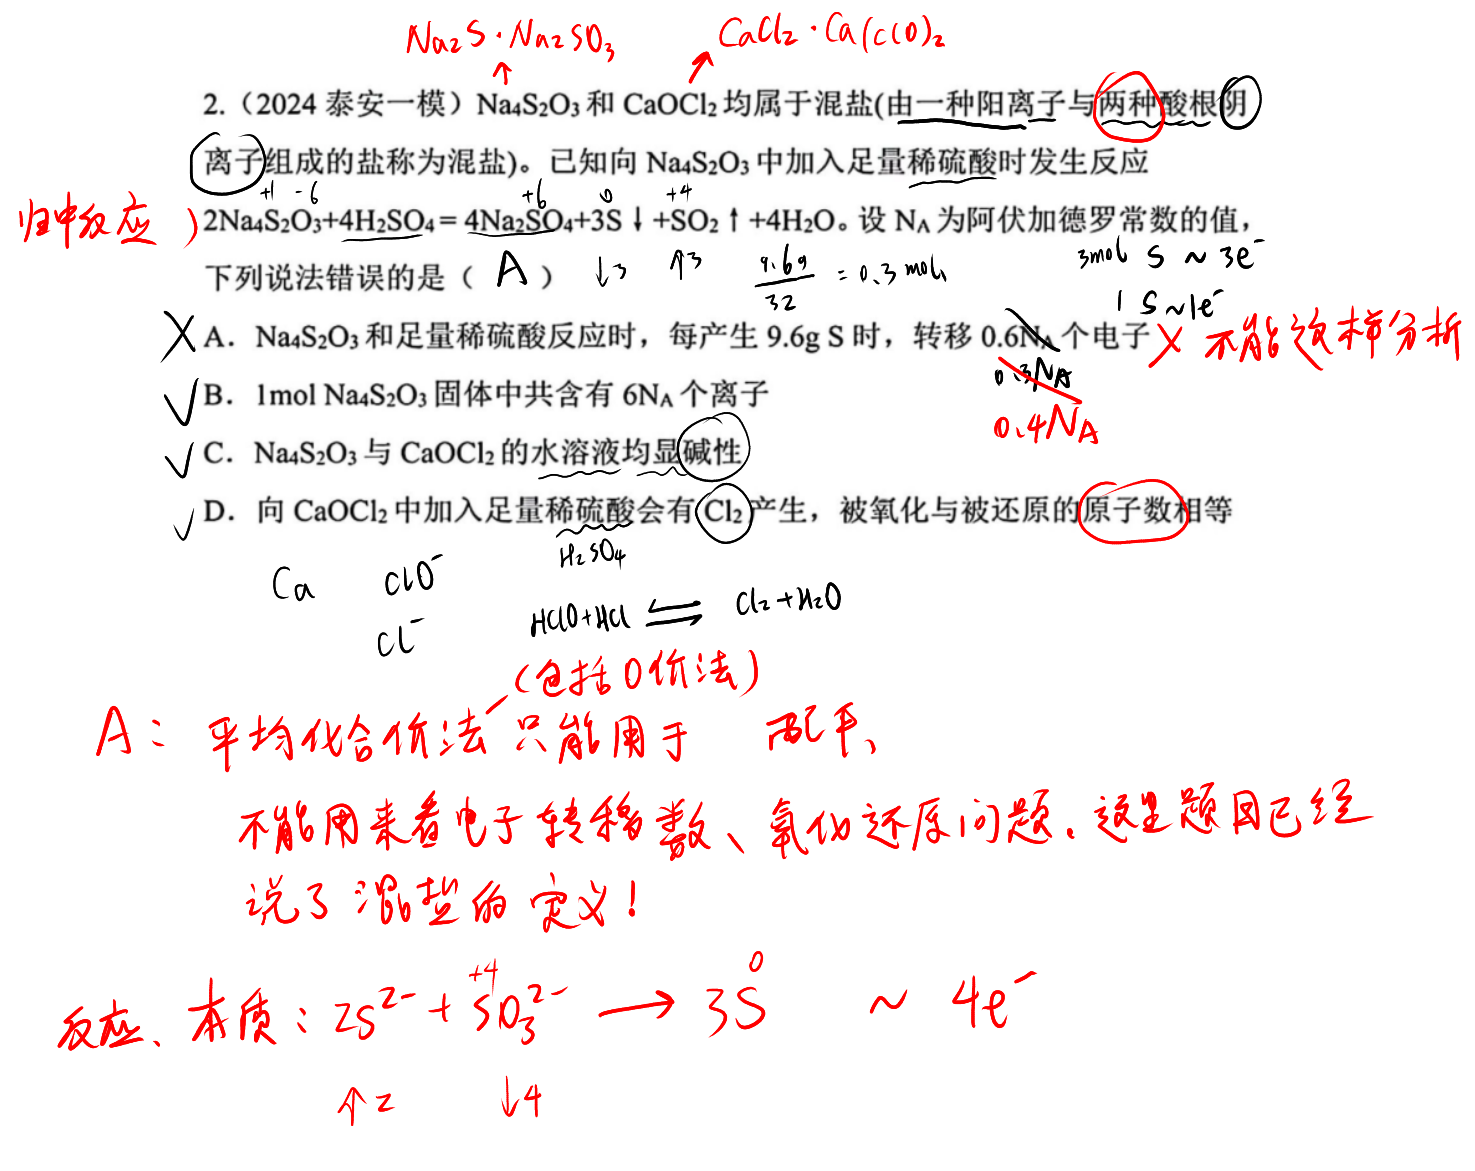 Na2S·Na2SO3 CaCl2·Ca(ClO)2
2.（2024 泰安一模）Na4S2O3 和 CaOCl2 均属于混盐(由一种阳离子与两种酸根阴
离子组成的盐称为混盐)。已知向 Na4S2O3 中加入足量稀硫酸时发生反应
+1 -6 +6 0 +4
归中反应
2Na4S2O3+4H2SO4=4Na2SO4+3S↓+SO2↑+4H2O。设 NA 为阿伏加德罗常数的值，
下列说法错误的是（ A ） ↓3 ↑3 9.6g/32 = 0.3 mol 3mol S ~ 3e⁻
1 S~1e⁻
X A．Na4S2O3 和足量稀硫酸反应时，每产生 9.6g S 时，转移 0.6NA 个电子 X 不能这样分析
0.3NA
√ B．1mol Na4S2O3 固体中共含有 6NA 个离子
0.4NA
√ C．Na4S2O3 与 CaOCl2 的水溶液均显碱性
√ D．向 CaOCl2 中加入足量稀硫酸会有 Cl2 产生，被氧化与被还原的原子数相等
H2SO4
Ca ClO⁻
Cl⁻ HClO+HCl ⇌ Cl2+H2O
(包括0价法)
A：平均化合价法 只能用于 配平、
不能用来看电子转移数、氧化还原问题。这里题目已经
说了混盐的定义！
+4 0
反应、本质：2S²⁻ + SO3²⁻ → 3S ~ 4e⁻
↑2 ↓4